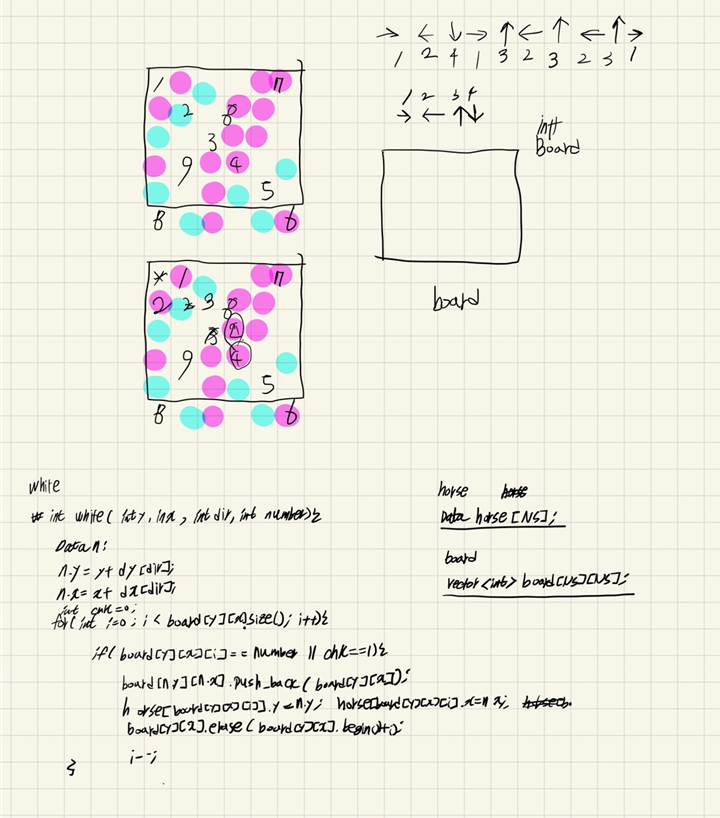 → ← ↓ → ↑ ← ↑ ← ↑ →
1 2 4 1 3 2 3 2 3 1
1 2 3 4
→ ← ↑ ↓
int
Board
board
1 7
2 8
3
9 4
5
8 6
1 7
2 2 3 8
3 2
9 4
5
8 6
white
int white( int y, int x, int dir, int number){
Data n;
n.y = y+ dy[dir];
n.x = x+ dx[dir];
int chk=0;
for( int i=0; i < board[y][x].size(); i++){
if( board[y][x][i] == number || chk==1){
board[n.y][n.x].push_back( board[y][x][i]);
horse[board[y][x][i]].y = n.y; horse[board[y][x][i].x=n.x;
board[y][x].erase( board[y][x].begin()+i);
i--;
}
horse horse
Data horse[NS];
board
vector<int> board[NS][NS];